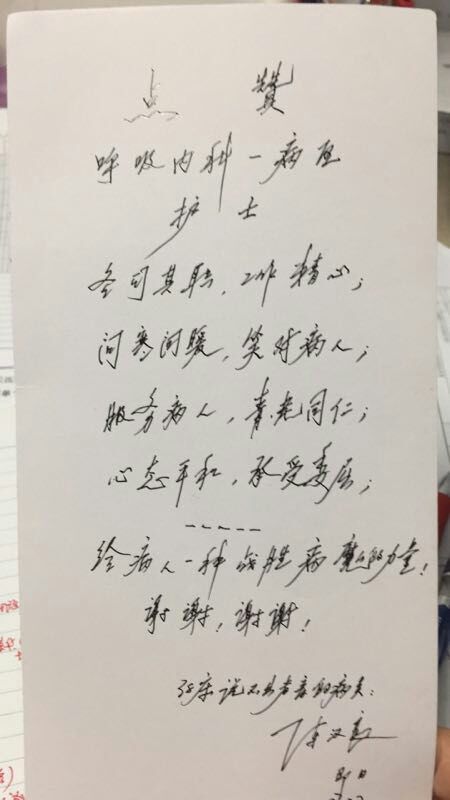 点赞
呼吸内科一病区
护士
各司其职，工作精心；
问寒问暖，笑对病人；
服务病人，责无同仁；
心态平和，承受委屈；
------
给病人一种战胜病魔的力量！
谢谢！谢谢！
35床说不出声音的病员：